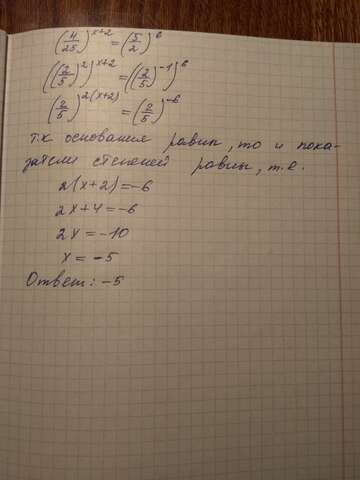 (4/25)^x+2 = (5/2)^6
((2/5)^2)^x+2 = ((2/5)^-1)^6
(2/5)^2(x+2) = (2/5)^-6
т.к основания равны, то и пока-
затели степеней равны, т.е.
2(x+2)=-6
2x+4=-6
2x=-10
x=-5
Ответ: -5